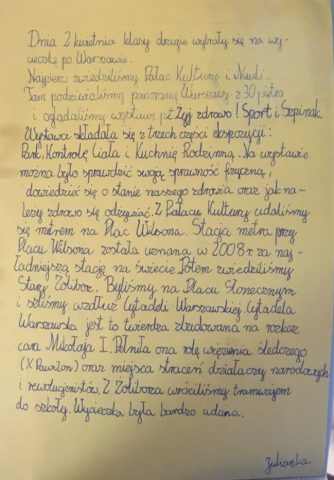 Dnia 2 kwietnia klasy drugie wybrały się na wy-
cieczkę po Warszawie.
Najpierw zwiedziliśmy Pałac Kultury i Nauki.
Tam podziwialiśmy panoramę Warszawy z 30 piętra
i oglądaliśmy wystawę pt. Żyj zdrowo! Sport i Szpinak.
Wystawa składała się z trzech części ekspozycji:
Park, Kontrolę Ciała i Kuchnię Rodzinną. Na wystawie
można było sprawdzić swoją sprawność fizyczną,
dowiedzieć się o stanie naszego zdrowia oraz jak na-
leży zdrowo się odżywiać. Z Pałacu Kultury udaliśmy
się metrem na Plac Wilsona. Stacja metra przy
Placu Wilsona została uznana w 2008 r za naj-
ładniejszą stację na świecie. Potem zwiedziliśmy
Stary Żoliborz. Byliśmy na Placu Słonecznym
i szliśmy wzdłuż Cytadeli Warszawskiej. Cytadela
Warszawska jest to twierdza zbudowana na rozkaz
cara Mikołaja I. Pełniła ona rolę więzienia śledczego
(X Pawilon) oraz miejsca straceń działaczy narodowych
i rewolucjonistów. Z Żoliborza wróciliśmy tramwajem
do szkoły. Wycieczka była bardzo udana.
Julianka